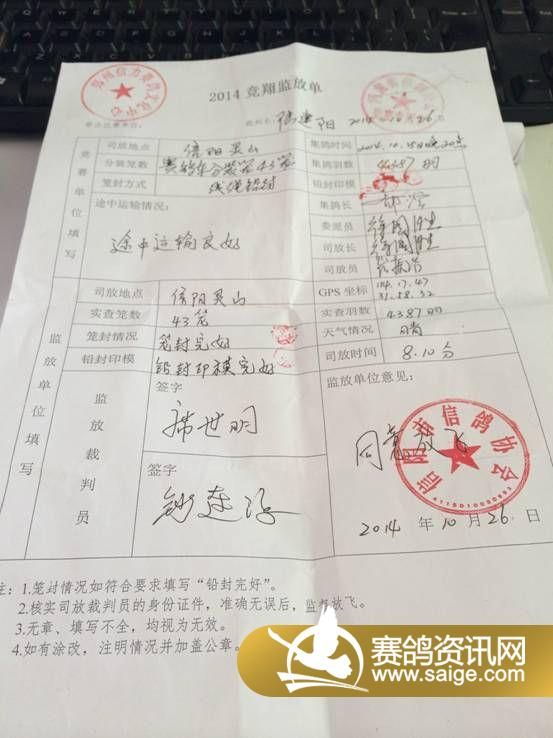 2014 竞翔监放单
2014.10.26日
竞赛单位填写
司放地点 信阳灵山 集鸽时间
分装笼数 43笼 集鸽羽数 4387羽
笼封方式 线绳铅封 铅封印模
途中运输情况: 集鸽长
途中运输良好 委派员
司放长
司放员
监放单位填写
司放地点 信阳灵山 GPS 坐标 114.17.47 31.58.32
实查笼数 43笼 实查羽数 4387羽
笼封情况 笼封完好 天气情况 晴
铅封印模 铅封印模完好 司放时间 8.10分
监放裁判员
签字 监放单位意见:
席世明 同意放飞
信阳市信鸽协会
签字
2014 年 10 月 26 日
注: 1.笼封情况如符合要求填写“铅封完好”。
2.核实司放裁判员的身份证件，准确无误后，监督放飞。
3.无章、填写不全，均视为无效。
4.如有涂改，注明情况并加盖公章。
赛鸽资讯网
www.saige.com